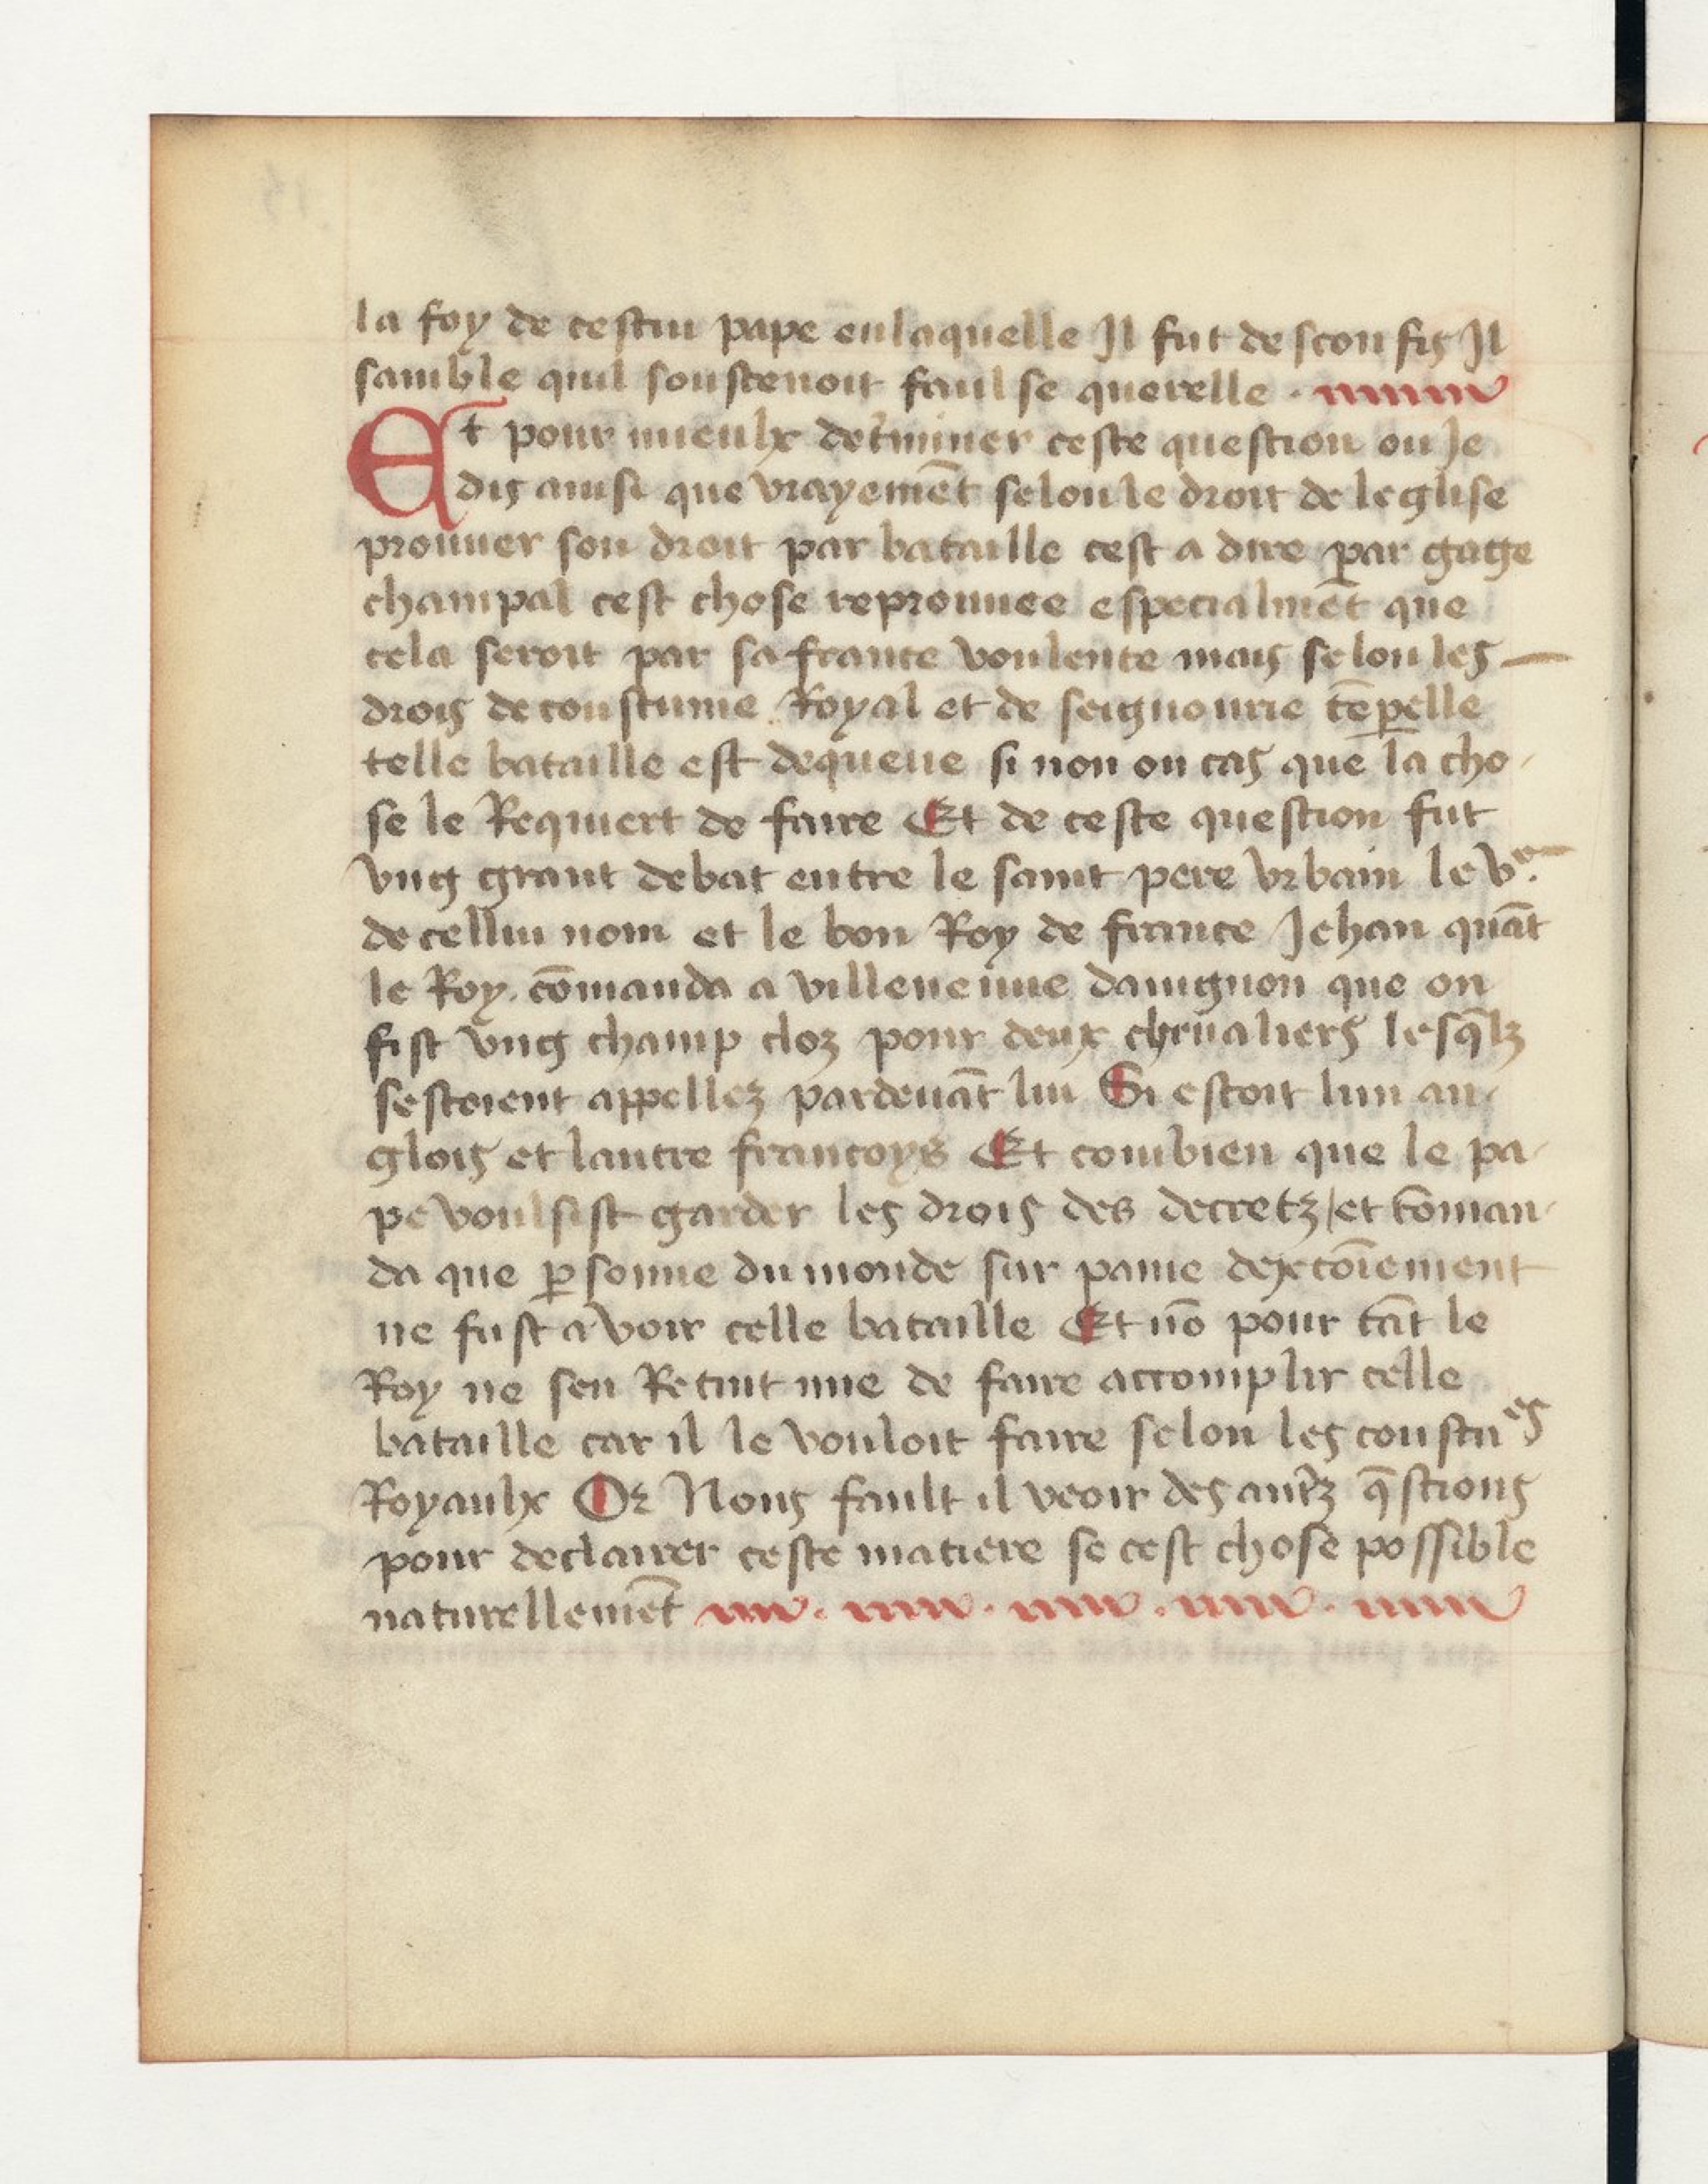 la foy de cestui pape en laquelle Il fut desconfis Il
samble quil soustenoit faulse querelle .
Et pour mieulx det̃miner ceste question ou Je
dis ainsi que vrayemẽt selon le droit de leglise
prouuer son droit par bataille cest a dire par gage
champal cest chose reprouuee especialmẽt que
cela seroit par sa france voulente mais selon les
drois de coustume Royal et de seignourie tẽpelle
telle bataille est dequeue si non ou cas que la cho
se le Requiert de faire Et de ceste question fut
vng grant debat entre le saint pere vrbain le vᵉ.
de cellui nom et le bon Roy de france Jehan quãt
le Roy cõmanda a villeneuue dauignon que on
fist vng champ cloz pour deux chr̃ualiers lesq̃lz
sestoient appellez pardeuãt lui Si estoit lun an
glois et lautre francoys Et combien que le pa
pe voulsist garder les drois des decretz / et cõman
da que ꝑsonne du monde sur paine dexcõiement
ne fust a voir celle bataille Et nõ pour tãt le
Roy ne sen Retint mie de faire accomplir celle
bataille car il le vouloit faire selon les coustuᵉˢ
Royaulx Or Nous fault il veoir des autr̃z q̃stions
pour declairer ceste matiere se cest chose possible
naturellemẽt